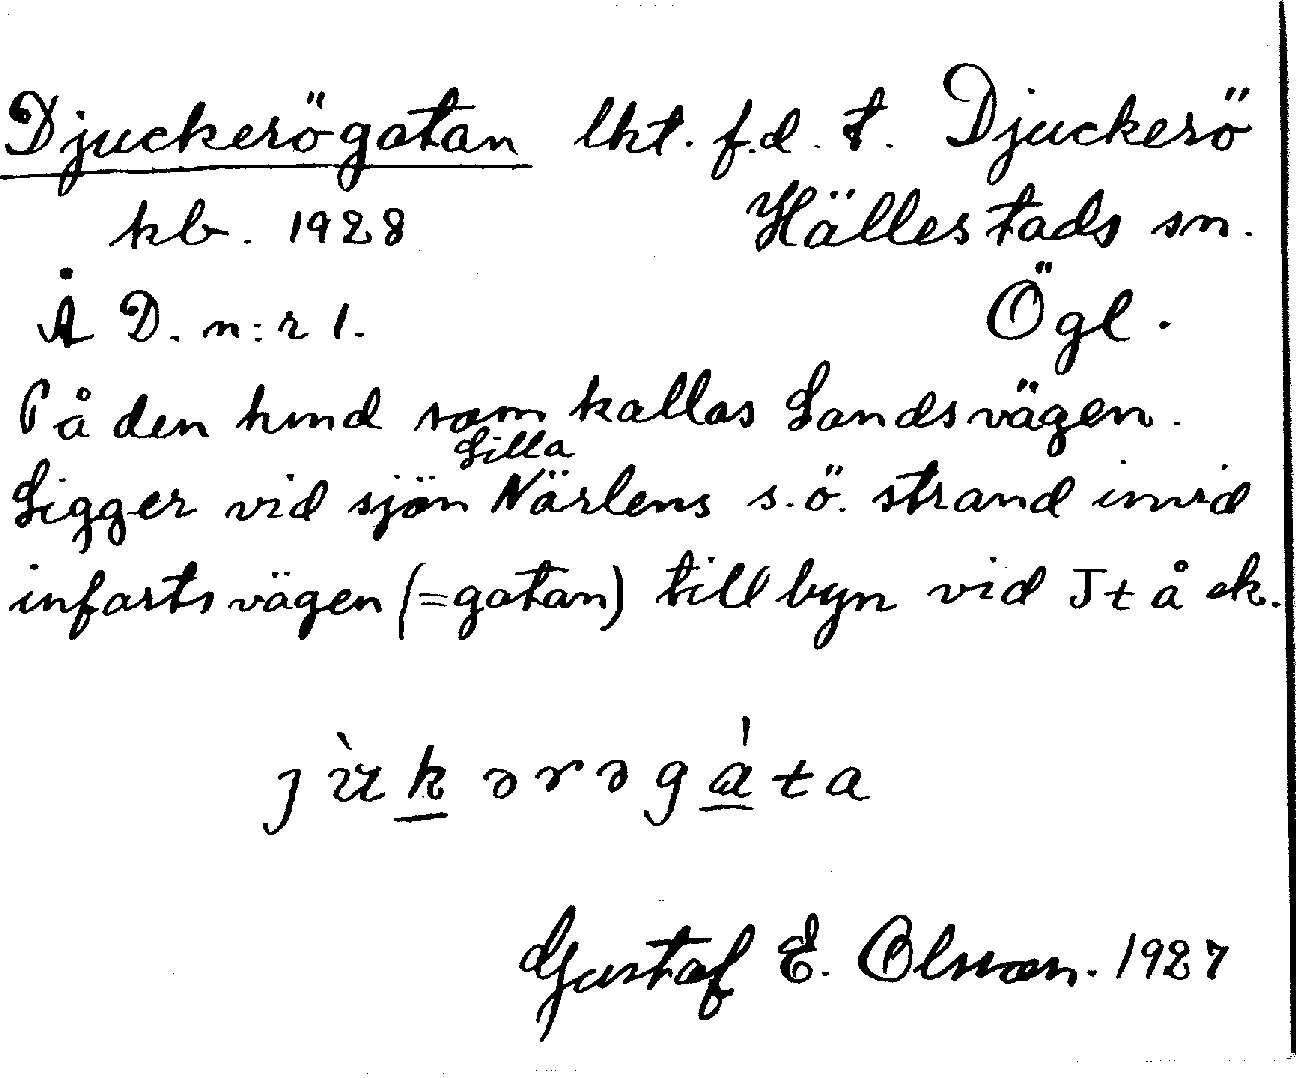 Djuckerögatan lht. f.d. t. Djuckerö
kb. 1928 Hällestads sn.
Å D. n:r 1. Ögl.
På den hmd som kallas Landsvägen.
Ligger vid sjön Lilla Närlens s.ö. strand invid
infartsvägen (=gatan) till byn vid J t å ek.
jùkərəgáta
Gustaf E. Olsson. 1927